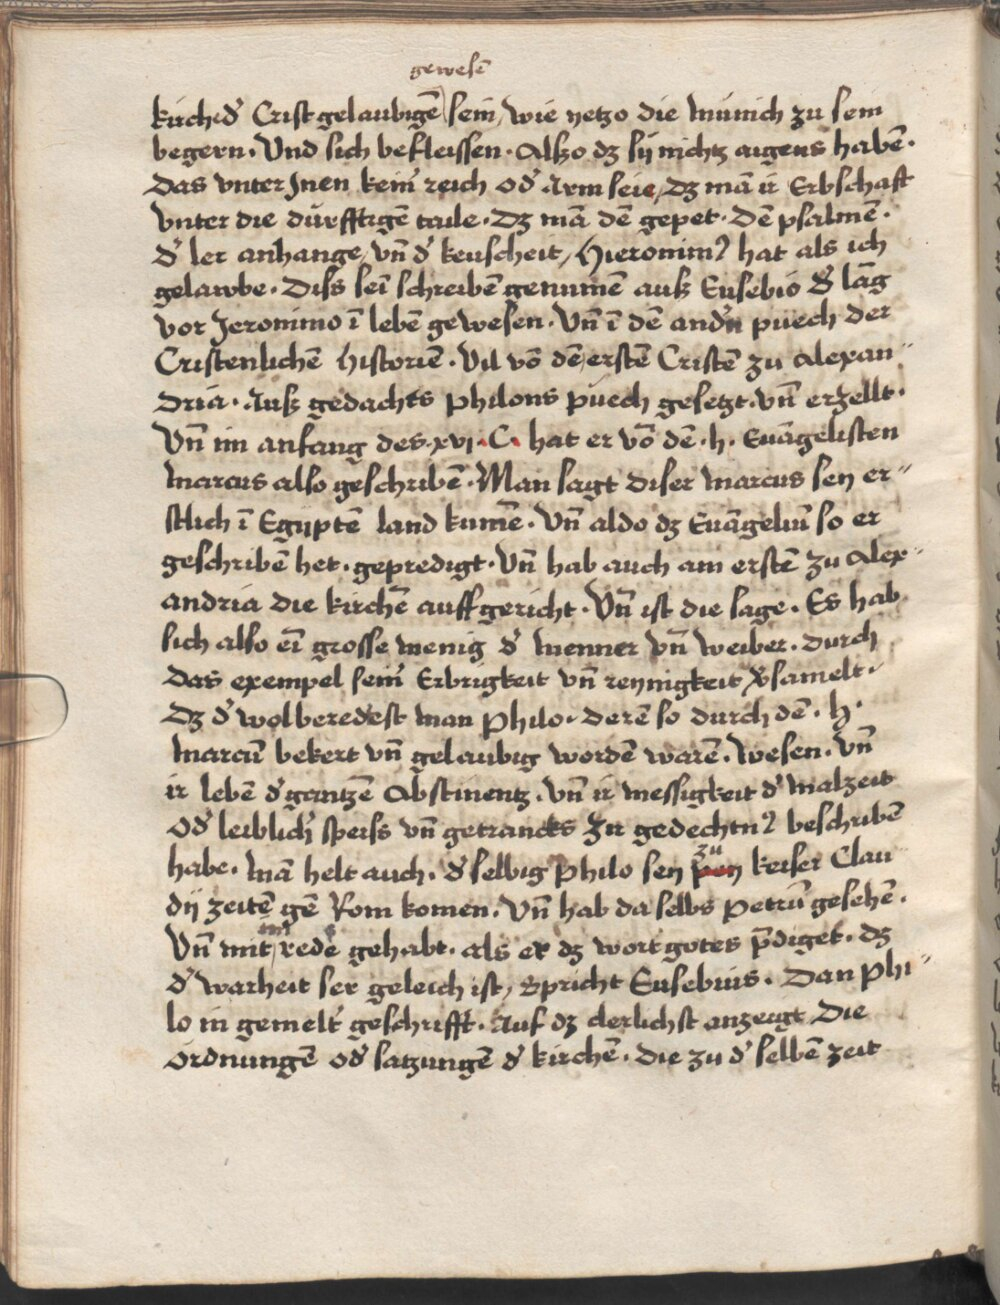 gewesē
kirch d' Crist gelaubigē sein, wie yetzo die münich zu sein
begern. Vnd sich befleissen. Alßo dz sy nichtz aigens habē.
Das vnter Jnen kein' reich od' Arm seie, Dz mā ir Erbschafft
vnter die dürfftigē taile. Dz mā dē gepet. Dē psalmē.
d' ler anhange, vn̄ d' keuscheit, Hieronimꝰ hat als ich
gelawbe. Diss sei schreibē genumē auß Eusebio d' lāg
vor Jeronimo ī lebē gewesen. Vn̄ ī dē and'n püech der
Cristenlichē historiē. Vil vō dē erstē Cristē zu Alexan"
dria. Auß gedachts philons püech gesetzt. vn̄ erzellt.
Vn̄ im anfang des .xvj. C. hat er vō dē .h. Euāgelisten
Marcus also geschribē. Man sagt diser marcus sey er"
stlich ī Egiptē land kumē. Vn̄ aldo dz Euāgeliū so er
geschribē het. gepredigt. Vn̄ hab auch am erstē zu Alex"
andria die kirchē auffgericht. Vn̄ ist die sage. Es hab
sich also eī grosse menig d' menner vn̄ weiber. durch
das exempel sein' Erbrigkeit vn̄ reynigkeit v'samelt.
Dz d' wolberedest man Philo. derē so durch dē .h.
marcū bekert vn̄ gelaubig wordē warē. wesen. vn̄
ir lebē d' gantzē Abstinentz. vn̄ ir messigkeit d' malzeit
od' leiblich' speiss vn̄ getrancks zu gedechtnꝰ beschribē
habe. Mā helt auch. d' selbig Philo sey zu keiser Clau
dij zeitē gē Rom komen. Vn̄ hab da selbs Petrū gesehē.
Vn̄ mit im rede gehabt. als er dz wort gotes p̄diget. dz
d' warheit ser geleich ist, Spricht Eusebius. Dan Phi"
lo in gemelt' geschrifft. Auf dz clerlichst anzeigt Die
ordnungē od' satzungē d' kirchē. die zu d' selbē zeit